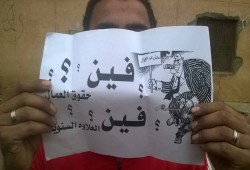 فين ؟؟
حقوق العمال
فين ؟؟
العلاوه السنوية